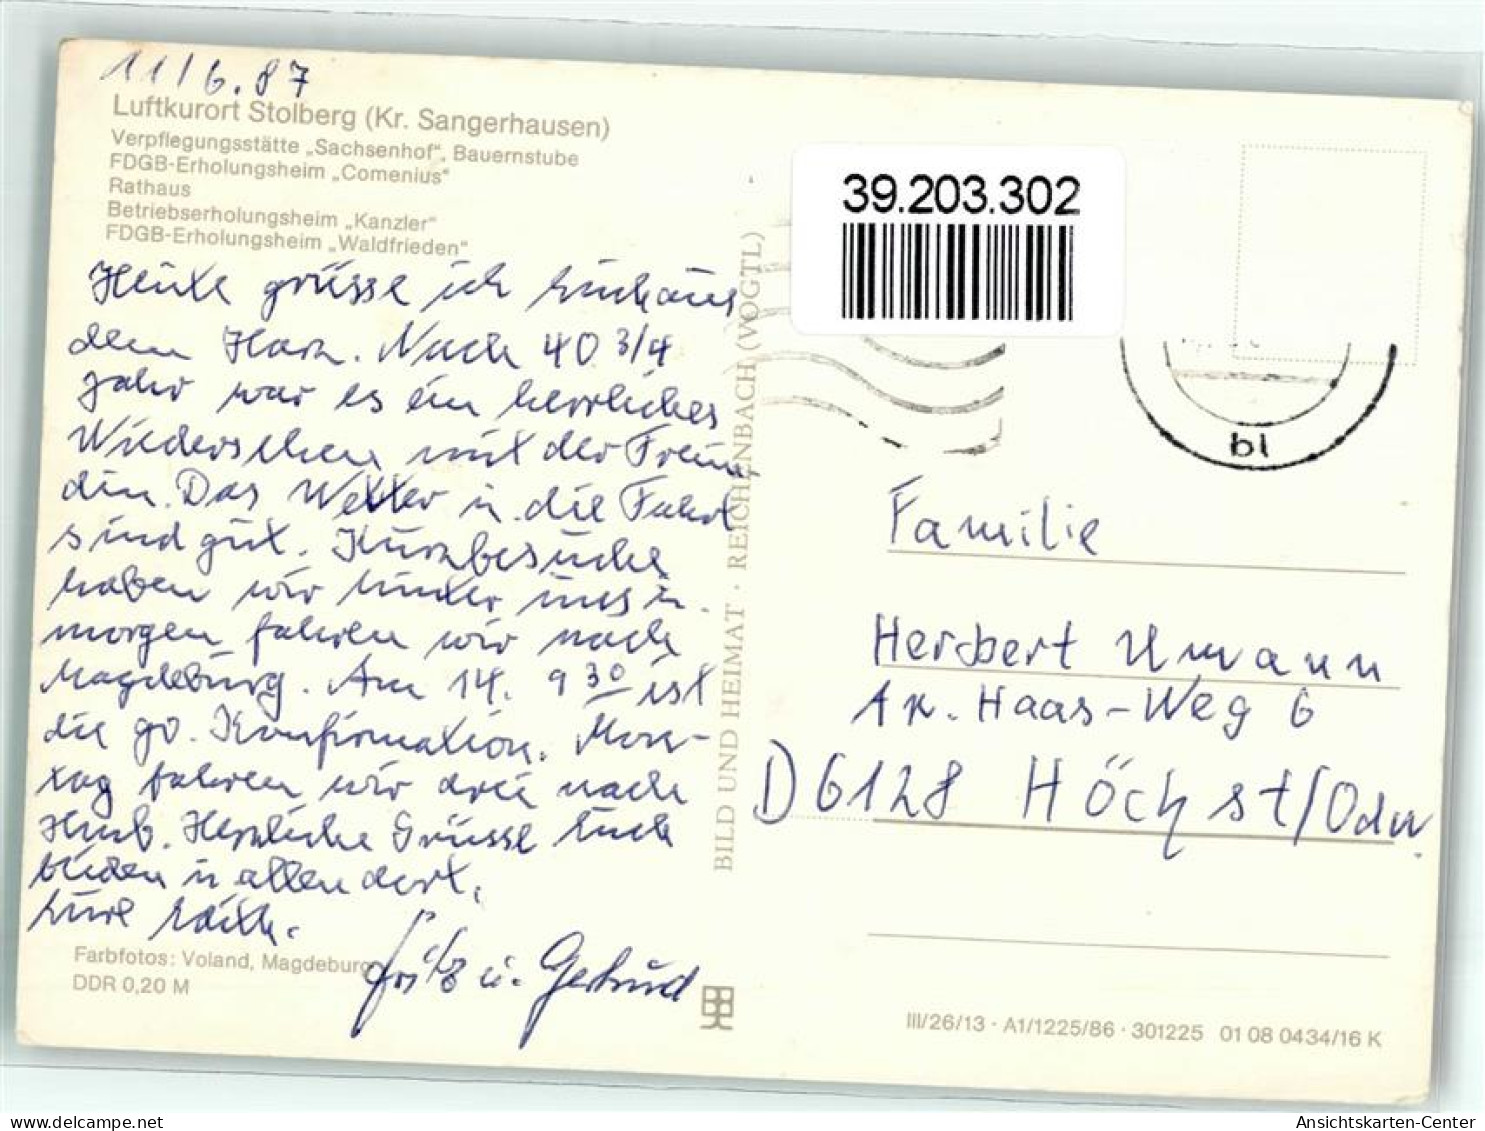 11/6.87
Luftkurort Stolberg (Kr. Sangerhausen)
Verpflegungsstätte „Sachsenhof", Bauernstube
FDGB-Erholungsheim „Comenius"
Rathaus
Betriebserholungsheim „Kanzler"
FDGB-Erholungsheim „Waldfrieden"
Heute grüsse ich Euch aus
dem Harz. Nach 40 3/4
Jahr war es ein herrliches
Wiedersehen mit der Freun
din. Das Wetter u. die Fahrt
sind gut. Kurzbesuche
haben wir hinter uns u.
morgen fahren wir nach
Magdeburg. Am 14. 9 30 ist
die go. Konfirmation. Mon-
tag fahren wir drei nach
Hmb. Herzliche Grüsse Euch
beiden u allen dort.
Eure Käth.
Fritz u. Gertrud
Farbfotos: Voland, Magdeburg
DDR 0,20 M
BILD UND HEIMAT · REICHENBACH (VOGTL)
39.203.302
bl
Familie
Herbert Umann
An. Haas-Weg 6
D 6128 Höchst/Odw.
III/26/13 · A1/1225/86 · 301225 01 08 0434/16 K
Ansichtskarten-Center